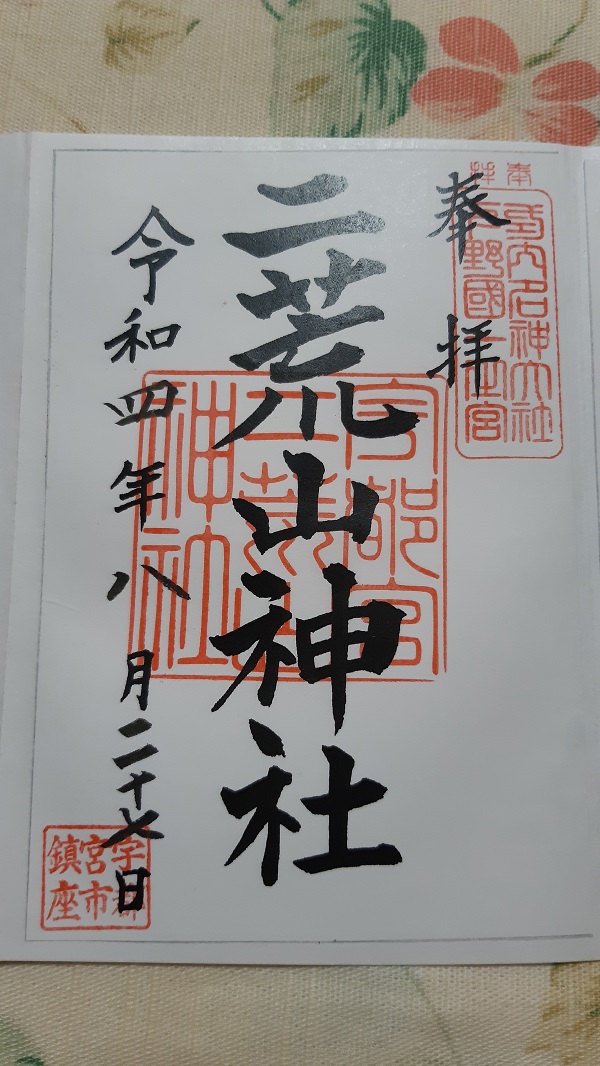 奉拝
二荒山神社
令和四年八月二十七日
奉拜
式内名神大社
下野國一之宮
宇都宮
二荒山
神社
宇都
宮市
鎮座